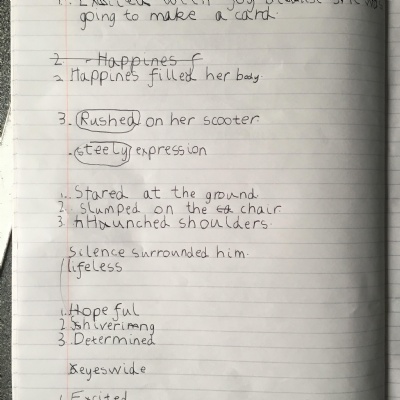 1. Excited with joy because she was
going to make a card.
2 - Happines f
2 Happines filled her body.
3. Rushed on her scooter
. steely expression
1. Stared at the ground
2 slumped on the chair
3 Haunched shoulders.
Silence surrounded him.
lifeless
1. Hopeful
2 Shivering
3. Determined
eyeswide
1. Excited